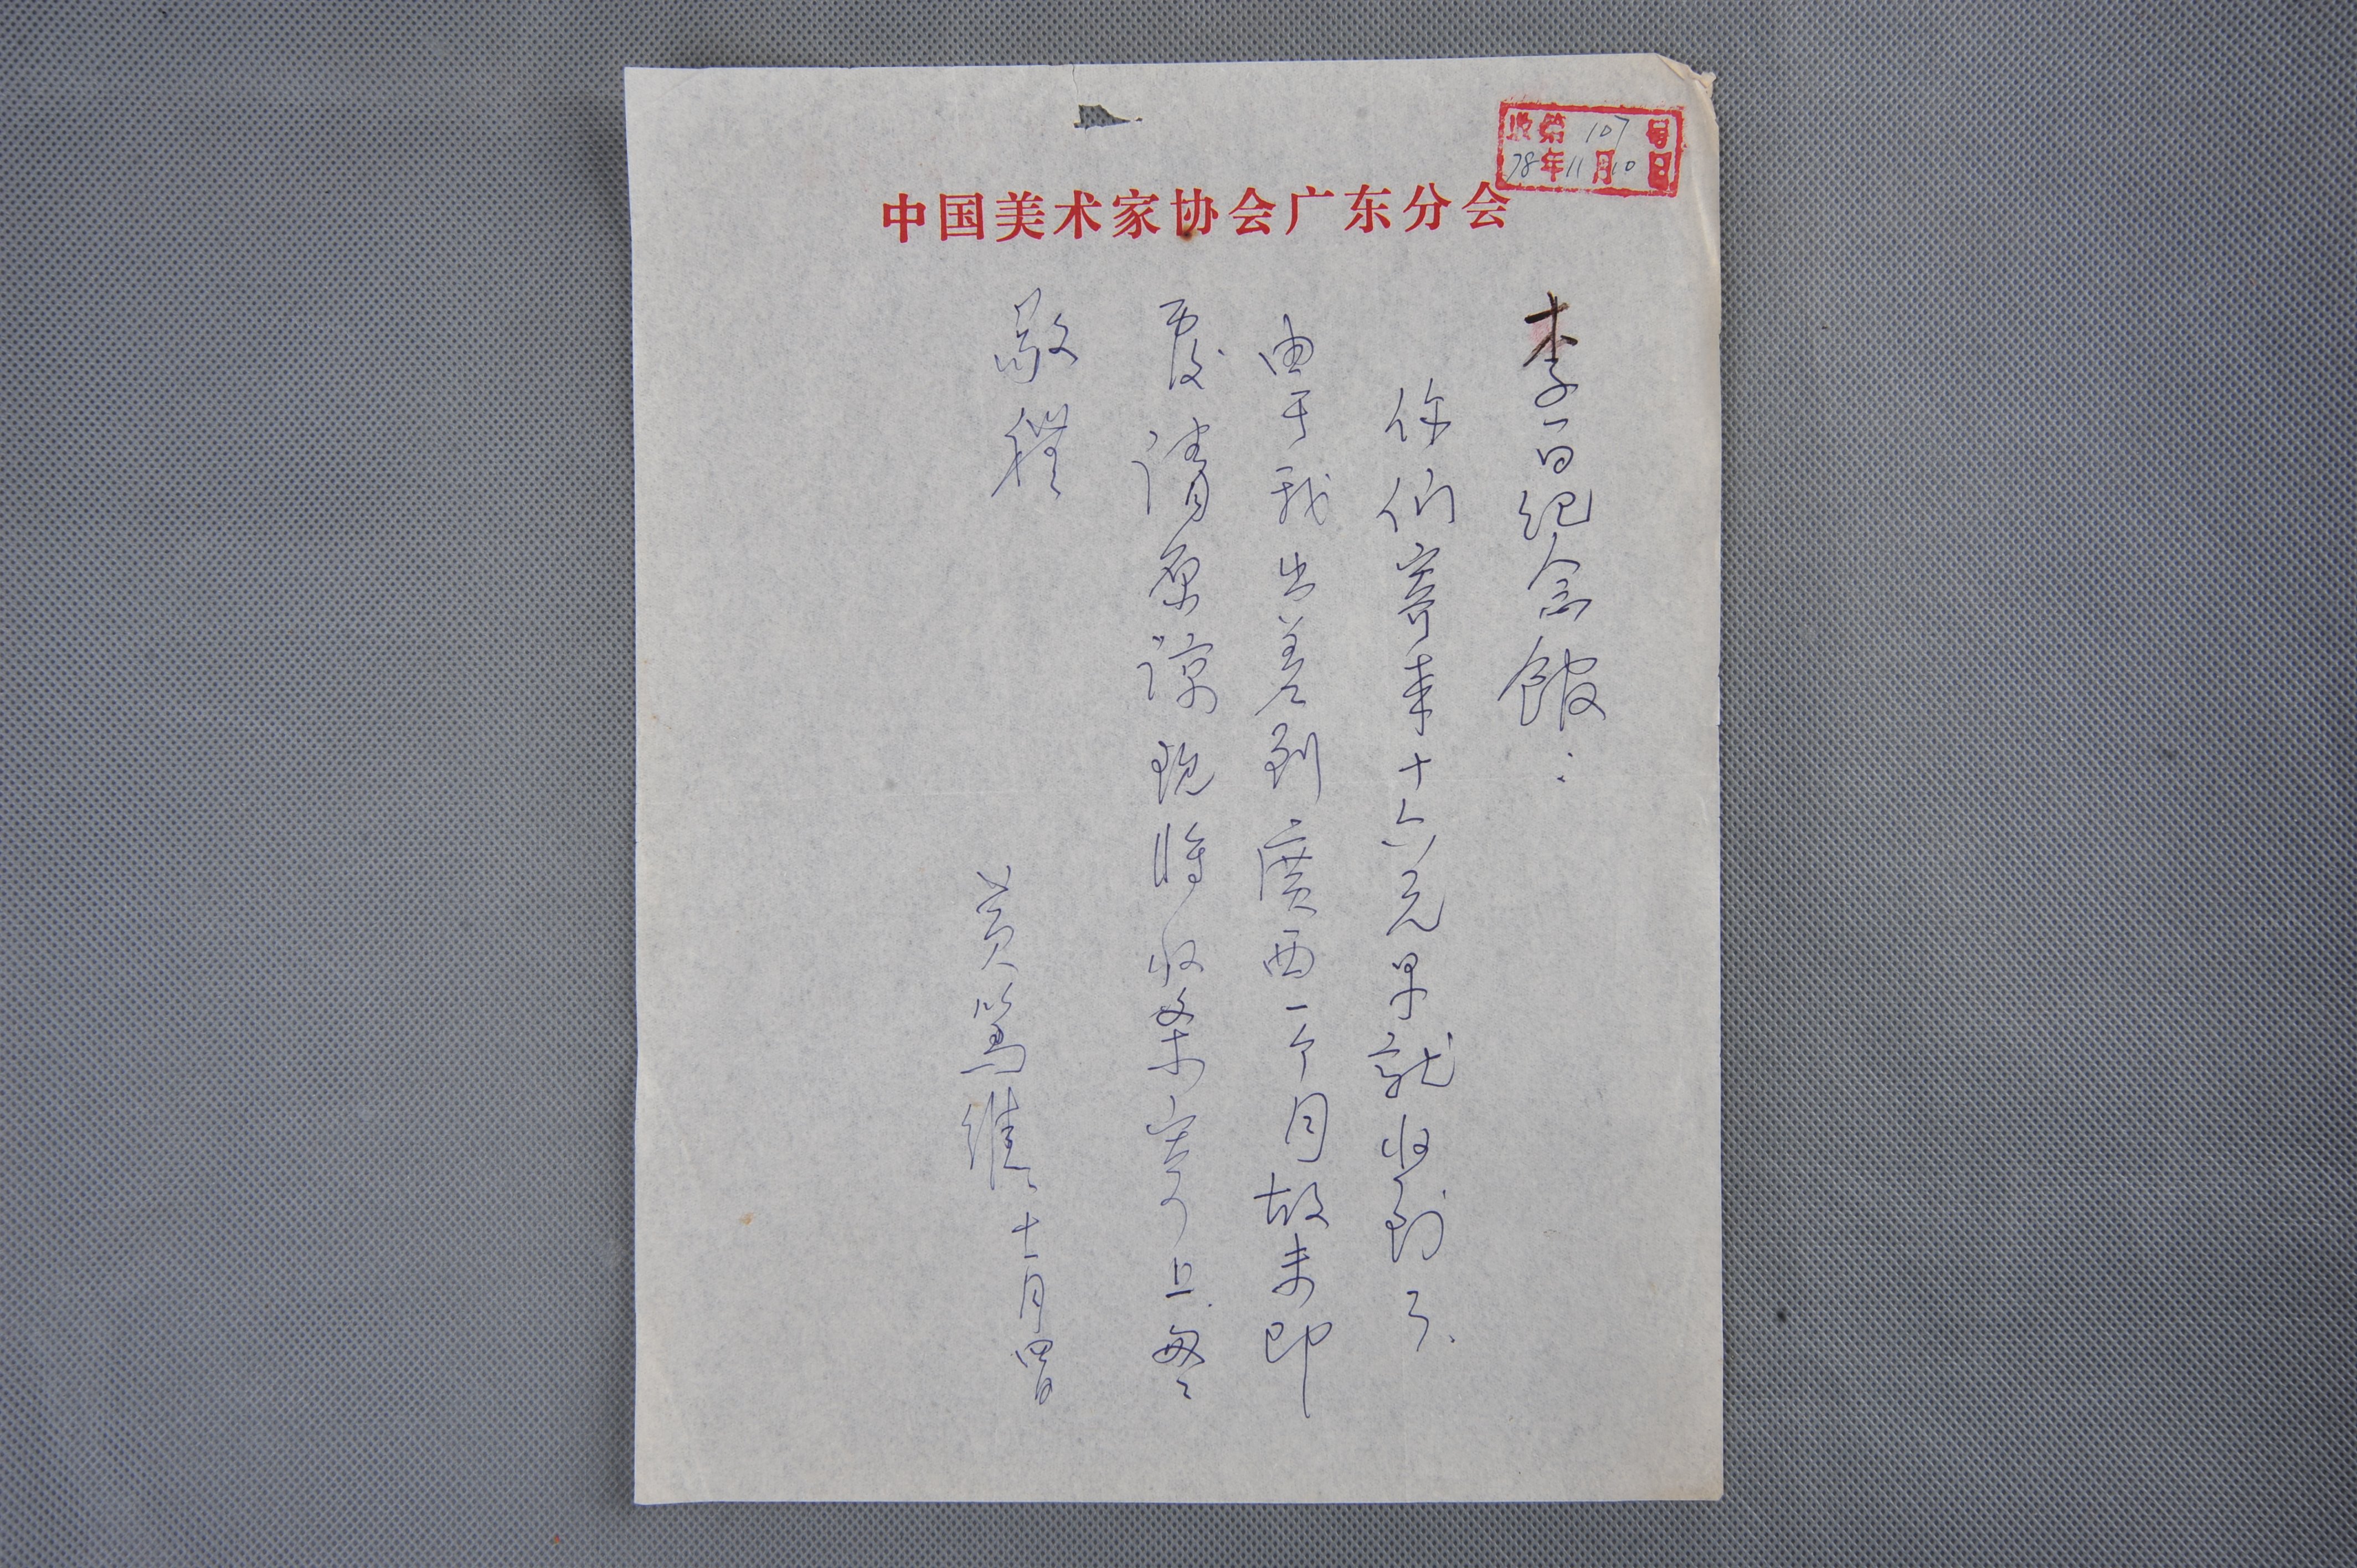 收第107号
78年11月10日
中国美术家协会广东分会
李白纪念馆：
你们寄来十六元早就收到了.
由于我出差到廣西一个月故未即
覆.请原谅现将收条寄上.
敬礼
黄笃维.十一月四日